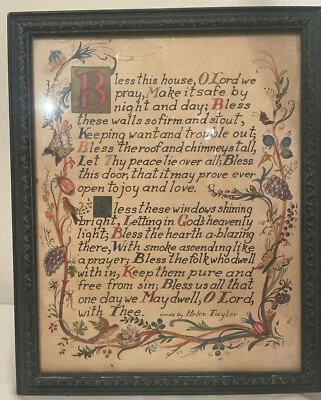 Bless this house, O Lord we
pray, Make it safe by
night and day; Bless
these walls so firm and stout,
Keeping want and trouble out,
Bless the roof and chimneys tall,
Let Thy peace lie over all; Bless
this door, that it may prove ever
open to joy and love.
Bless these windows shining
bright, Letting in God's heavenly
light; Bless the hearth a-blazing
there, With smoke ascending like
a prayer; Bless the folk who dwell
within, Keep them pure and
free from sin; Bless us all that
one day we May dwell, O Lord,
with Thee. words by Helen Taylor